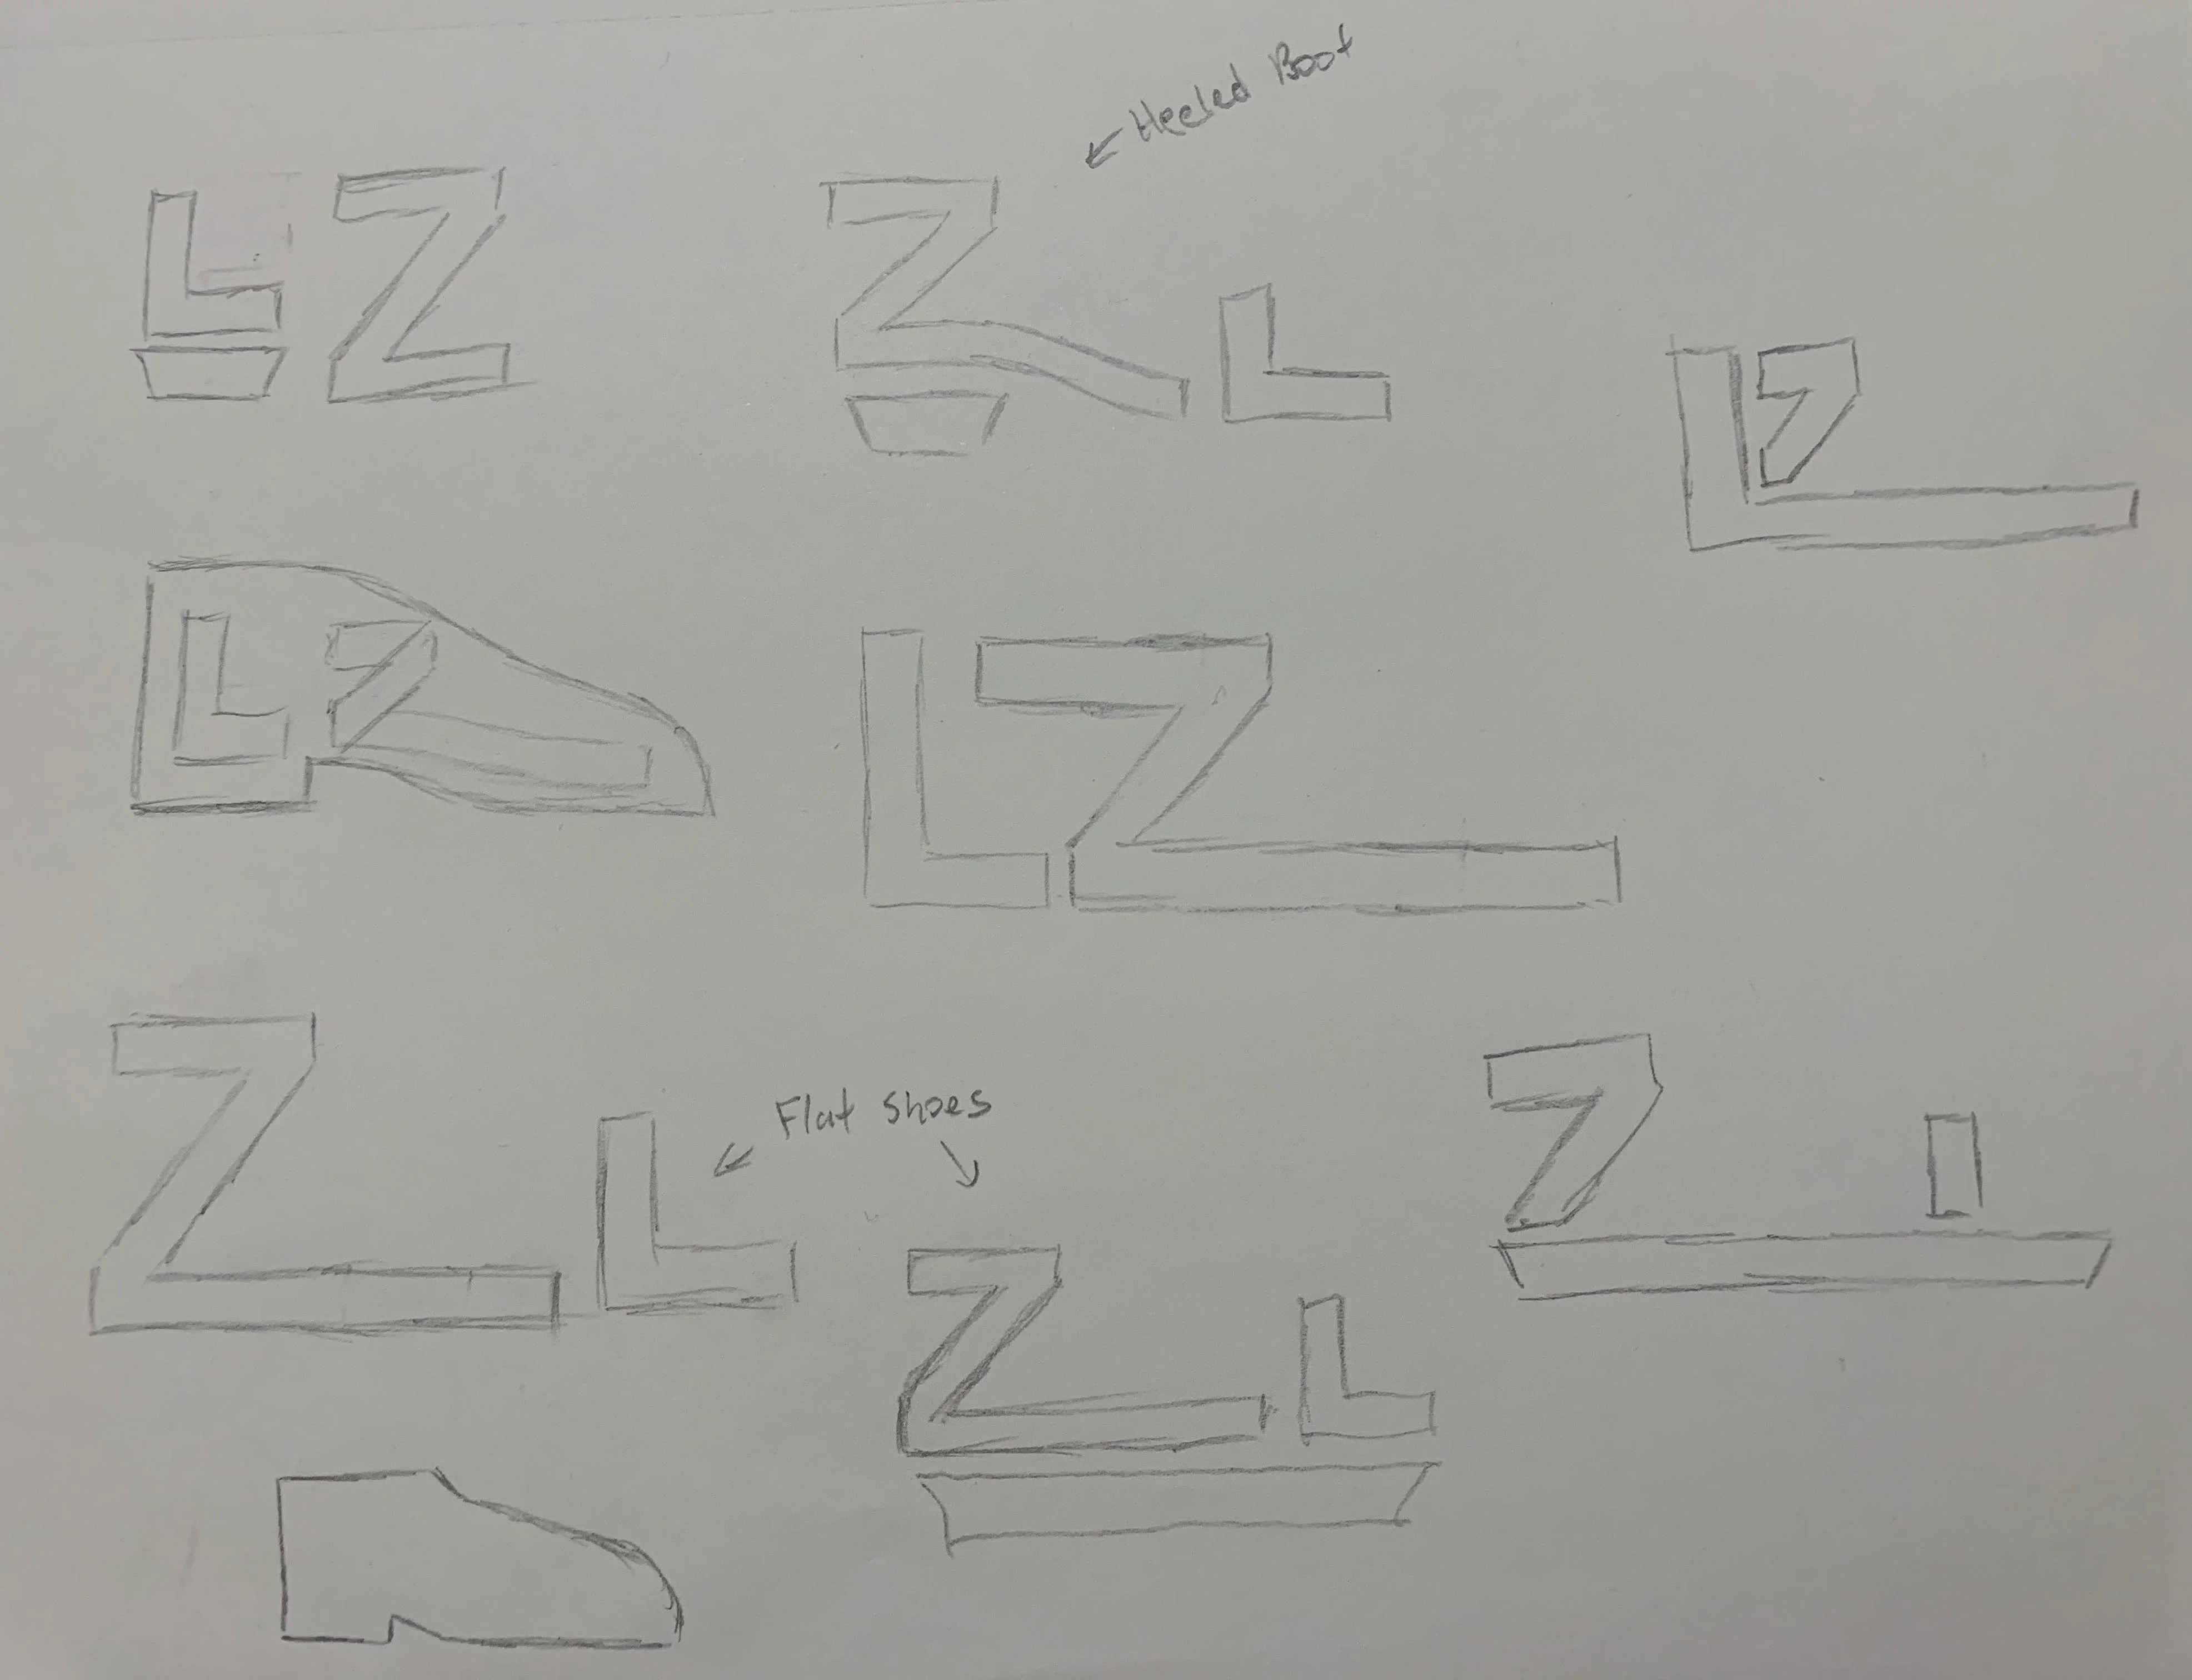 Heeled Boot
LZ
ZL
LZ
LZ
LZ
Flat Shoes
ZL
ZL